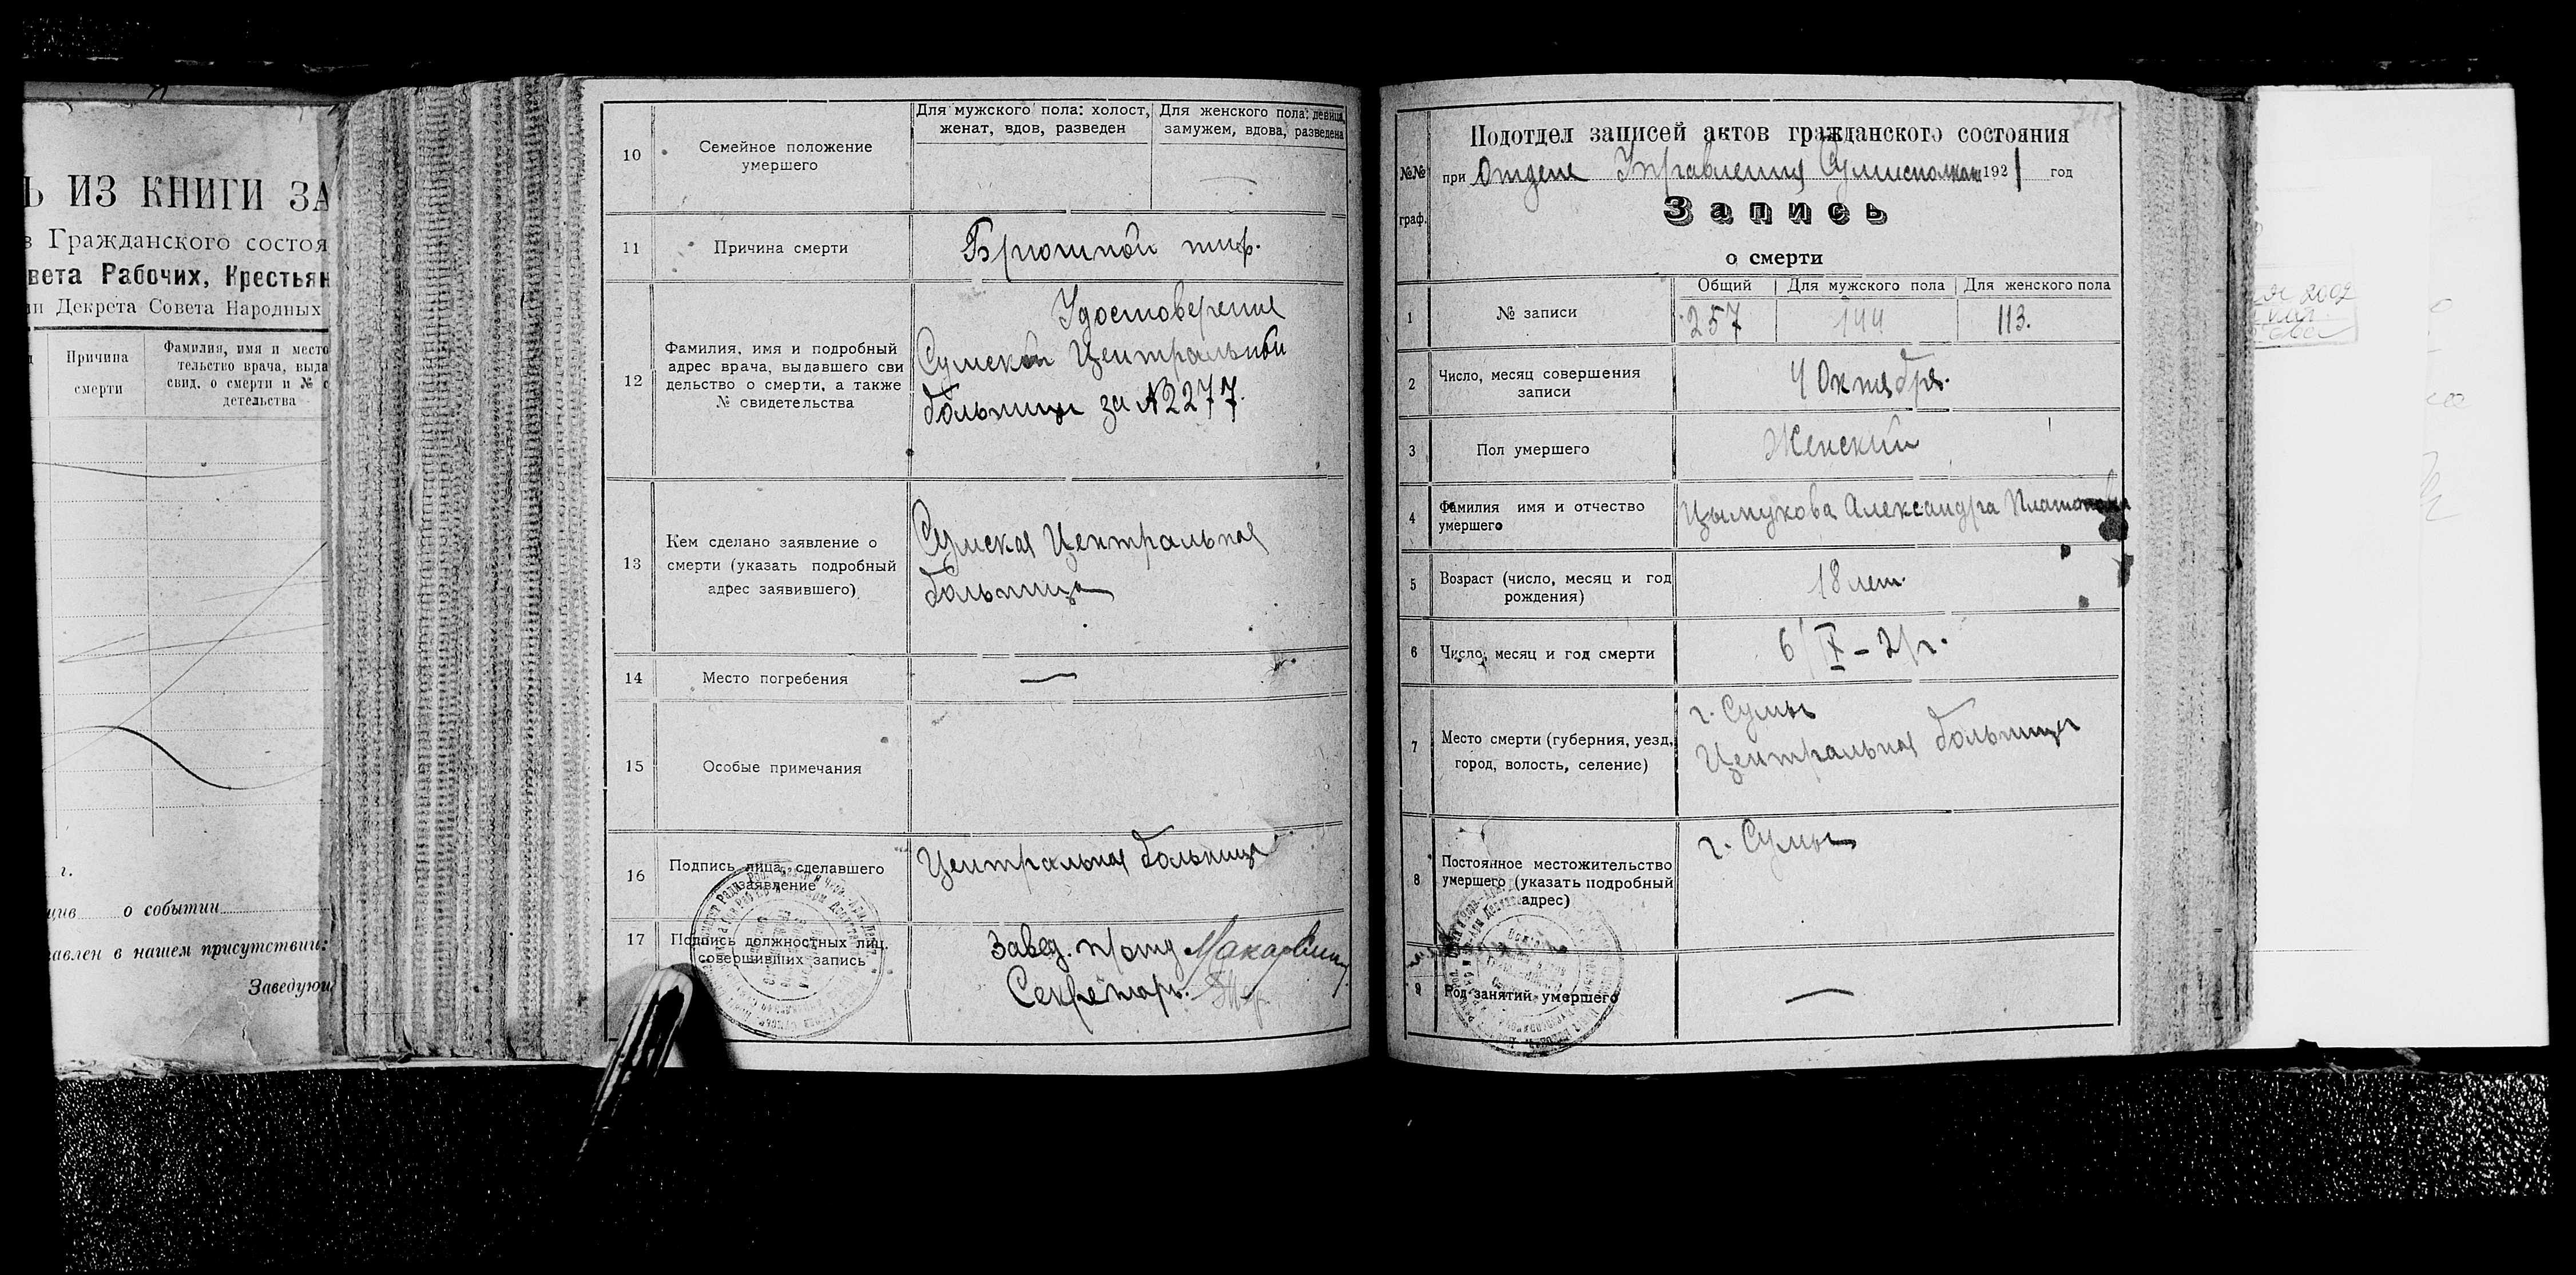 Ь ИЗ КНИГИ ЗА
в Гражданского состоя
вета Рабочих, Крестьян
ии Декрета Совета Народных
Причина
смерти
Фамилия, имя и место
тельство врача, выда
свид. о смерти и № с
детельства
г.
о событии
авлен в нашем присутствии:
Заведуюи
10
Семейное положение
умершего
Для мужского пола: холост,
женат, вдов, разведен
Для женского пола: девица,
замужем, вдова, разведена
11
Причина смерти
Брюшной тиф.
12
Фамилия, имя и подробный
адрес врача, выдавшего сви
дельство о смерти, а также
№ свидетельства
Удостоверение
Сумской Центральной
больницы за №2277.
13
Кем сделано заявление о
смерти (указать подробный
адрес заявившего)
Сумская Центральная
больница
14
Место погребения
—
15
Особые примечания
16
Подпись лица, сделавшего
заявление
Центральная больница
17
Подпись должностных лиц,
совершивших запись
Завед. п/отд
Секретарь.
Подотдел записей актов гражданского состояния
№№
граф.
при Отделе Управления Сумисполкома 1921 год
Запись
о смерти
1
№ записи
Общий
Для мужского пола
Для женского пола
257
144
113.
2
Число, месяц совершения
записи
4 Октября.
3
Пол умершего
Женский
4
Фамилия имя и отчество
умершего
Цымукова Александра Платоновна
5
Возраст (число, месяц и год
рождения)
18 лет.
6
Число, месяц и год смерти
6/X – 21 г.
7
Место смерти (губерния, уезд,
город, волость, селение)
г. Сумы
Центральная больница
8
Постоянное местожительство
умершего (указать подробный
адрес)
г. Сумы
9
Род занятий умершего
—
2002